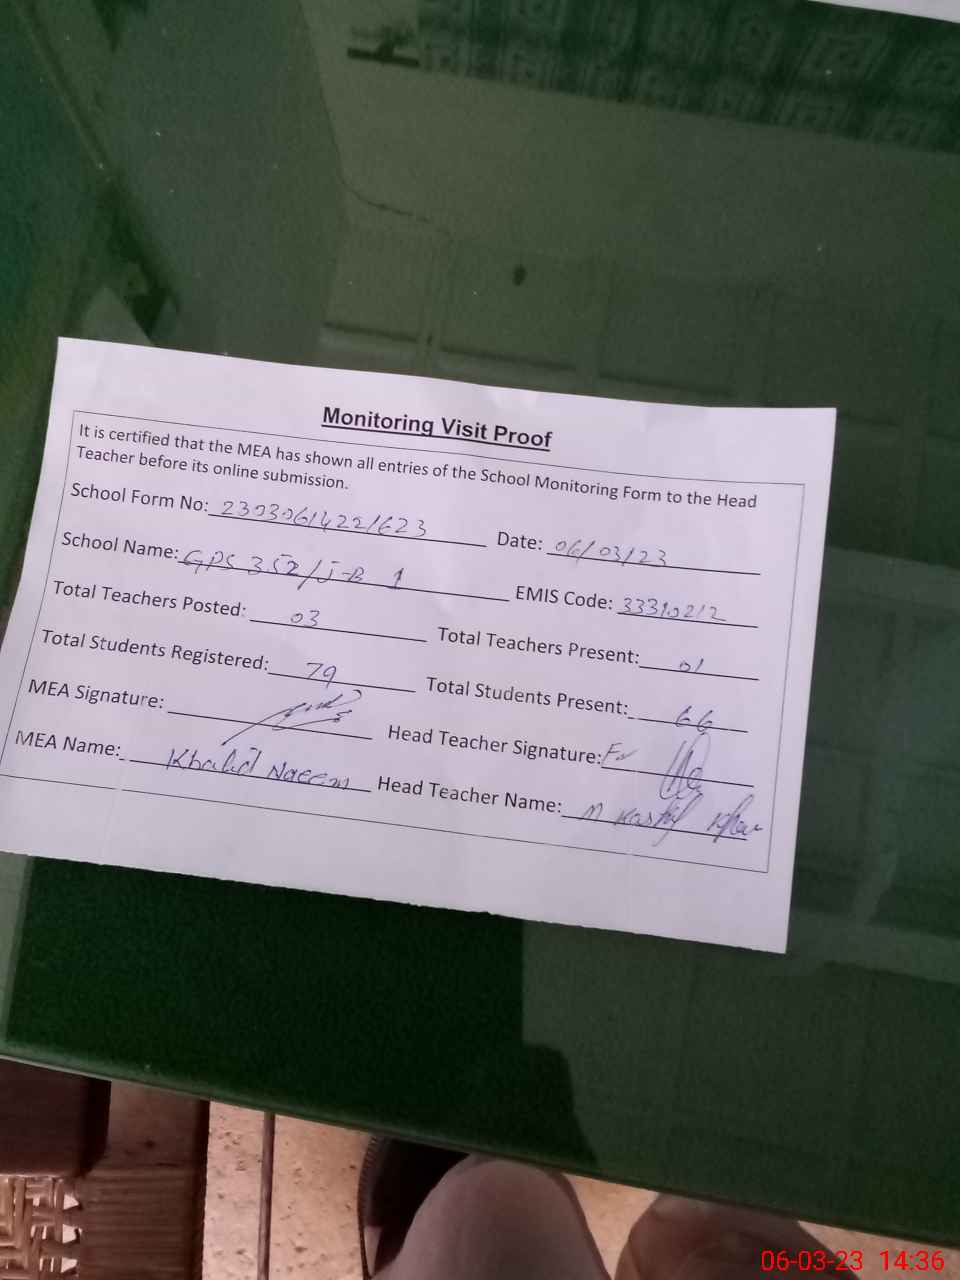 Monitoring Visit Proof
It is certified that the MEA has shown all entries of the School Monitoring Form to the Head
Teacher before its online submission.
School Form No: 23030614221623 Date: 06/03/23
School Name: GPS 352/J-B 1 EMIS Code: 33310212
Total Teachers Posted: 03 Total Teachers Present: 01
Total Students Registered: 79 Total Students Present: 66
MEA Signature: Head Teacher Signature: For
MEA Name: Khalid Naeem Head Teacher Name: M Kashif
06-03-23 14:36